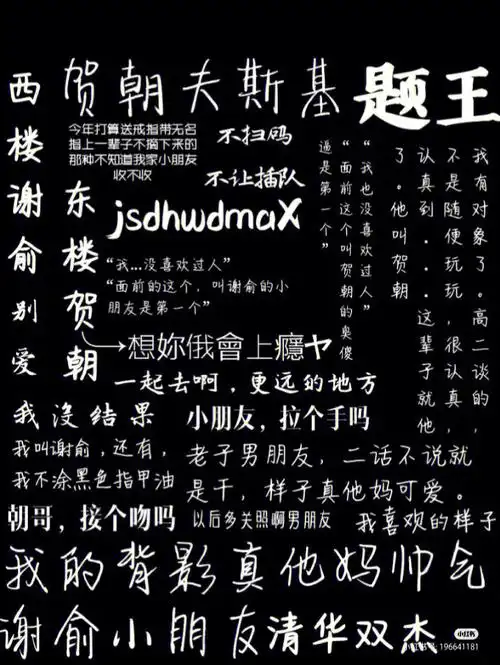 西楼谢俞
别爱
东楼贺朝
贺朝夫斯基
题王
今年打算送戒指带无名
指上一辈子不摘下来的
那种不知道我家小朋友
收不收
不扫码
不让插队
jsdhwdmaX
“我...没喜欢过人”
“面前的这个，叫谢俞的小
朋友是第一个”
“我也没喜欢过人”
“面前这个叫贺朝的臭傻
逼是第一个”
我有对象了。高二谈的，
不是随便玩玩。很认真的，
认真到.....这辈子就他，
了。他叫.贺.朝.
想妳俄會上癮ヤ
一起去啊，更远的地方
我没结果
小朋友，拉个手吗
我叫谢俞，还有，
我不涂黑色指甲油
老子男朋友，二话不说就
是干，样子真他妈可爱。
朝哥，接个吻吗
以后多关照啊男朋友
我喜欢的样子
我的背影真他妈帅气
谢俞小朋友
清华双木
小红书
小红书号:196641181